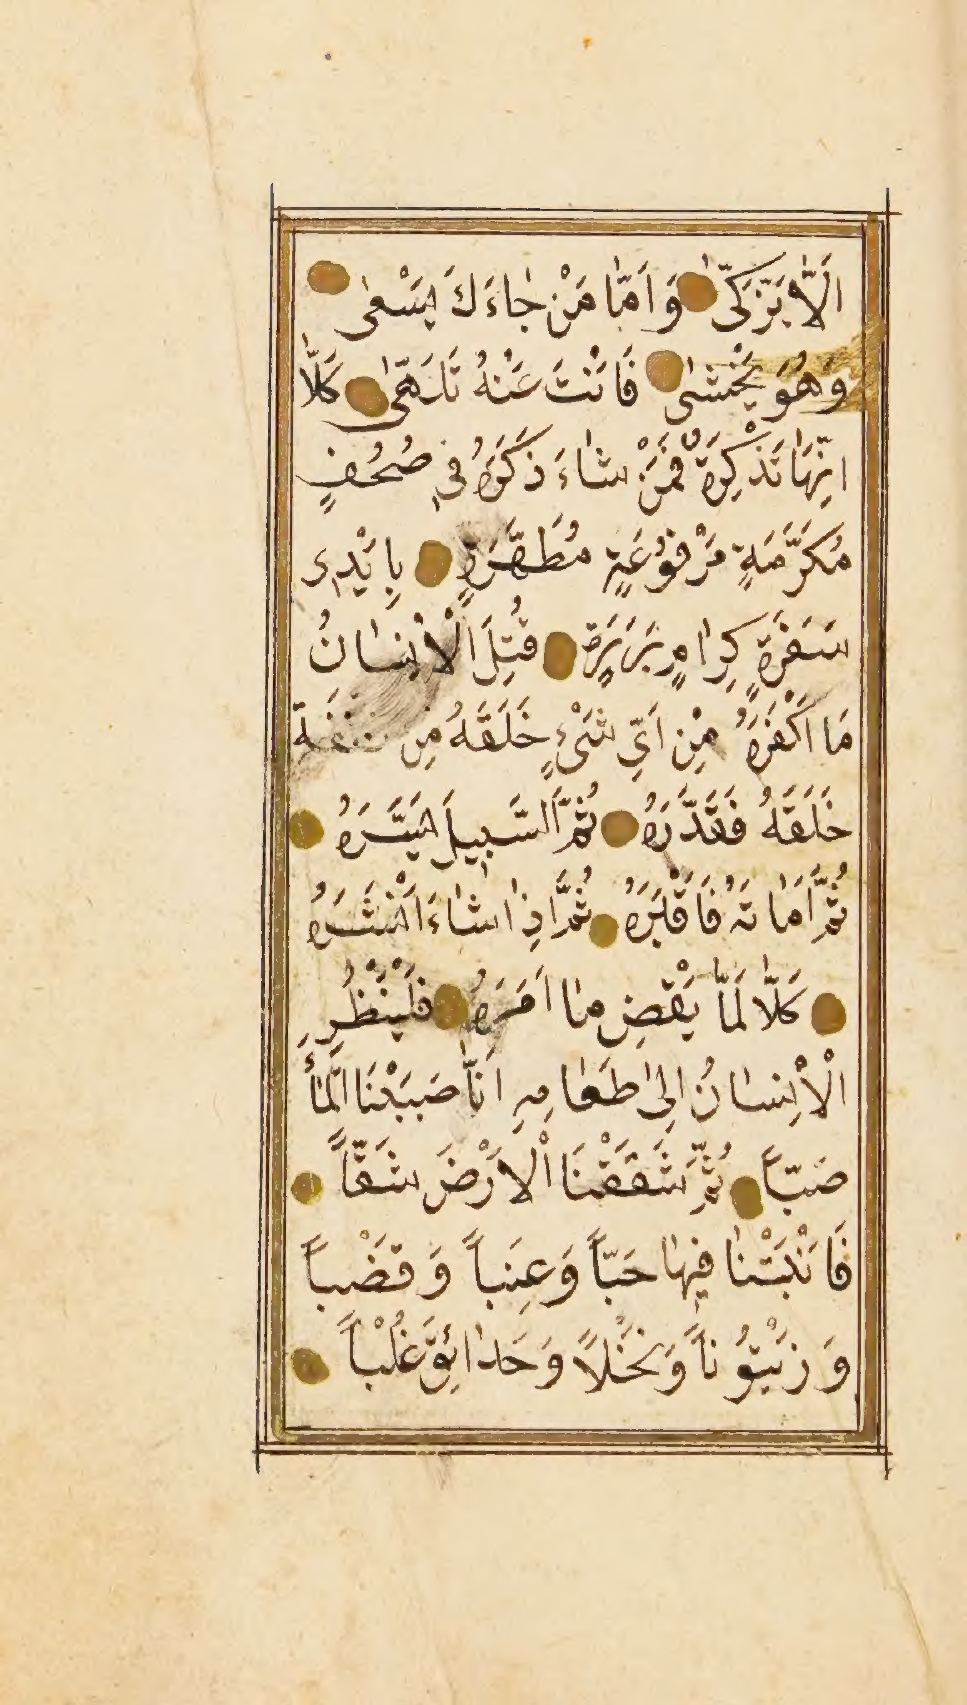 اَلَّا يَزَّكّٰى وَاَمَّا مَنْ جٰاءَكَ يَسْعٰى
وَهُوَ يَخْشٰى فَاَنْتَ عَنْهُ تَلَهّٰى كَلَّا
اِنَّهٰا تَذْكِرَةٌ فَمَنْ شٰاءَ ذَكَرَهُ فِى صُحُفٍ
مُكَرَّمَةٍ مَرْفُوعَةٍ مُطَهَّرَةٍ بِاَيْدِى
سَفَرَةٍ كِرٰامٍ بَرَرَةٍ قُتِلَ الْاِنْسٰانُ
مَا اَكْفَرَهُ مِنْ اَىِّ شَىْءٍ خَلَقَهُ مِنْ
خَلَقَهُ فَقَدَّرَهُ ثُمَّ السَّبِيلَ يَسَّرَهُ
ثُمَّ اَمٰاتَهُ فَاَقْبَرَهُ ثُمَّ اِذٰا شٰاءَ اَنْشَرَهُ
كَلَّا لَمَّا يَقْضِ مٰا اَمَرَهُ فَلْيَنْظُرِ
الْاِنْسٰانُ اِلٰى طَعٰامِهِ اَنَّا صَبَبْنَا الْمٰأَ
صَبّاً ثُمَّ شَقَقْنَا الْاَرْضَ شَقّاً
فَاَنْبَتْنٰا فِيهٰا حَبّاً وَعِنَباً وَقَضْباً
وَزَيْتُوناً وَنَخْلاً وَحَدٰائِقَ غُلْباً